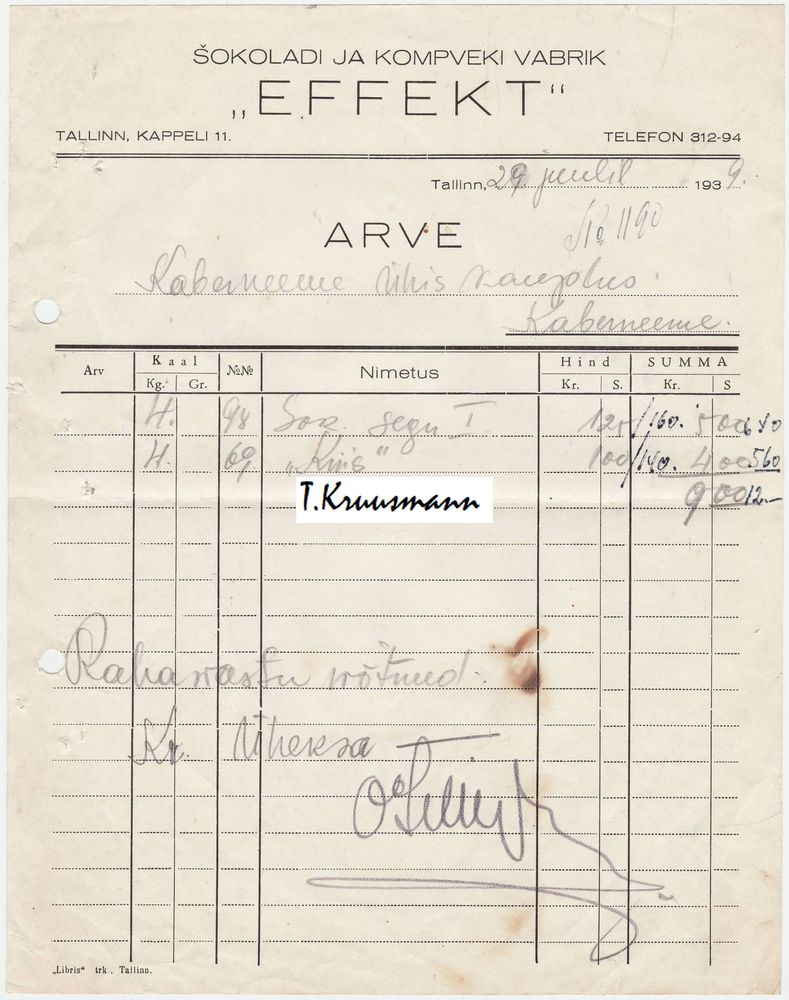 ŠOKOLADI JA KOMPVEKI VABRIK
„EFFEKT“
TALLINN, KAPPELI 11. TELEFON 312-94
Tallinn, 29 juulil 1939.
ARVE No 1190
Kaberneeme Ühis kauplus.
Kaberneeme.
Arv Kaal №№ Nimetus Hind SUMMA
Kg. Gr. Kr. S. Kr. S
4. 98 Šok. segu I 125 /160. 500 640
4. 69 „Kiis“ 100 /140. 400 560
900 12.—
T.Kruusmann
Raha vastu võtnud.
Kr. Üheksa —
„Libris“ trk., Tallinn.